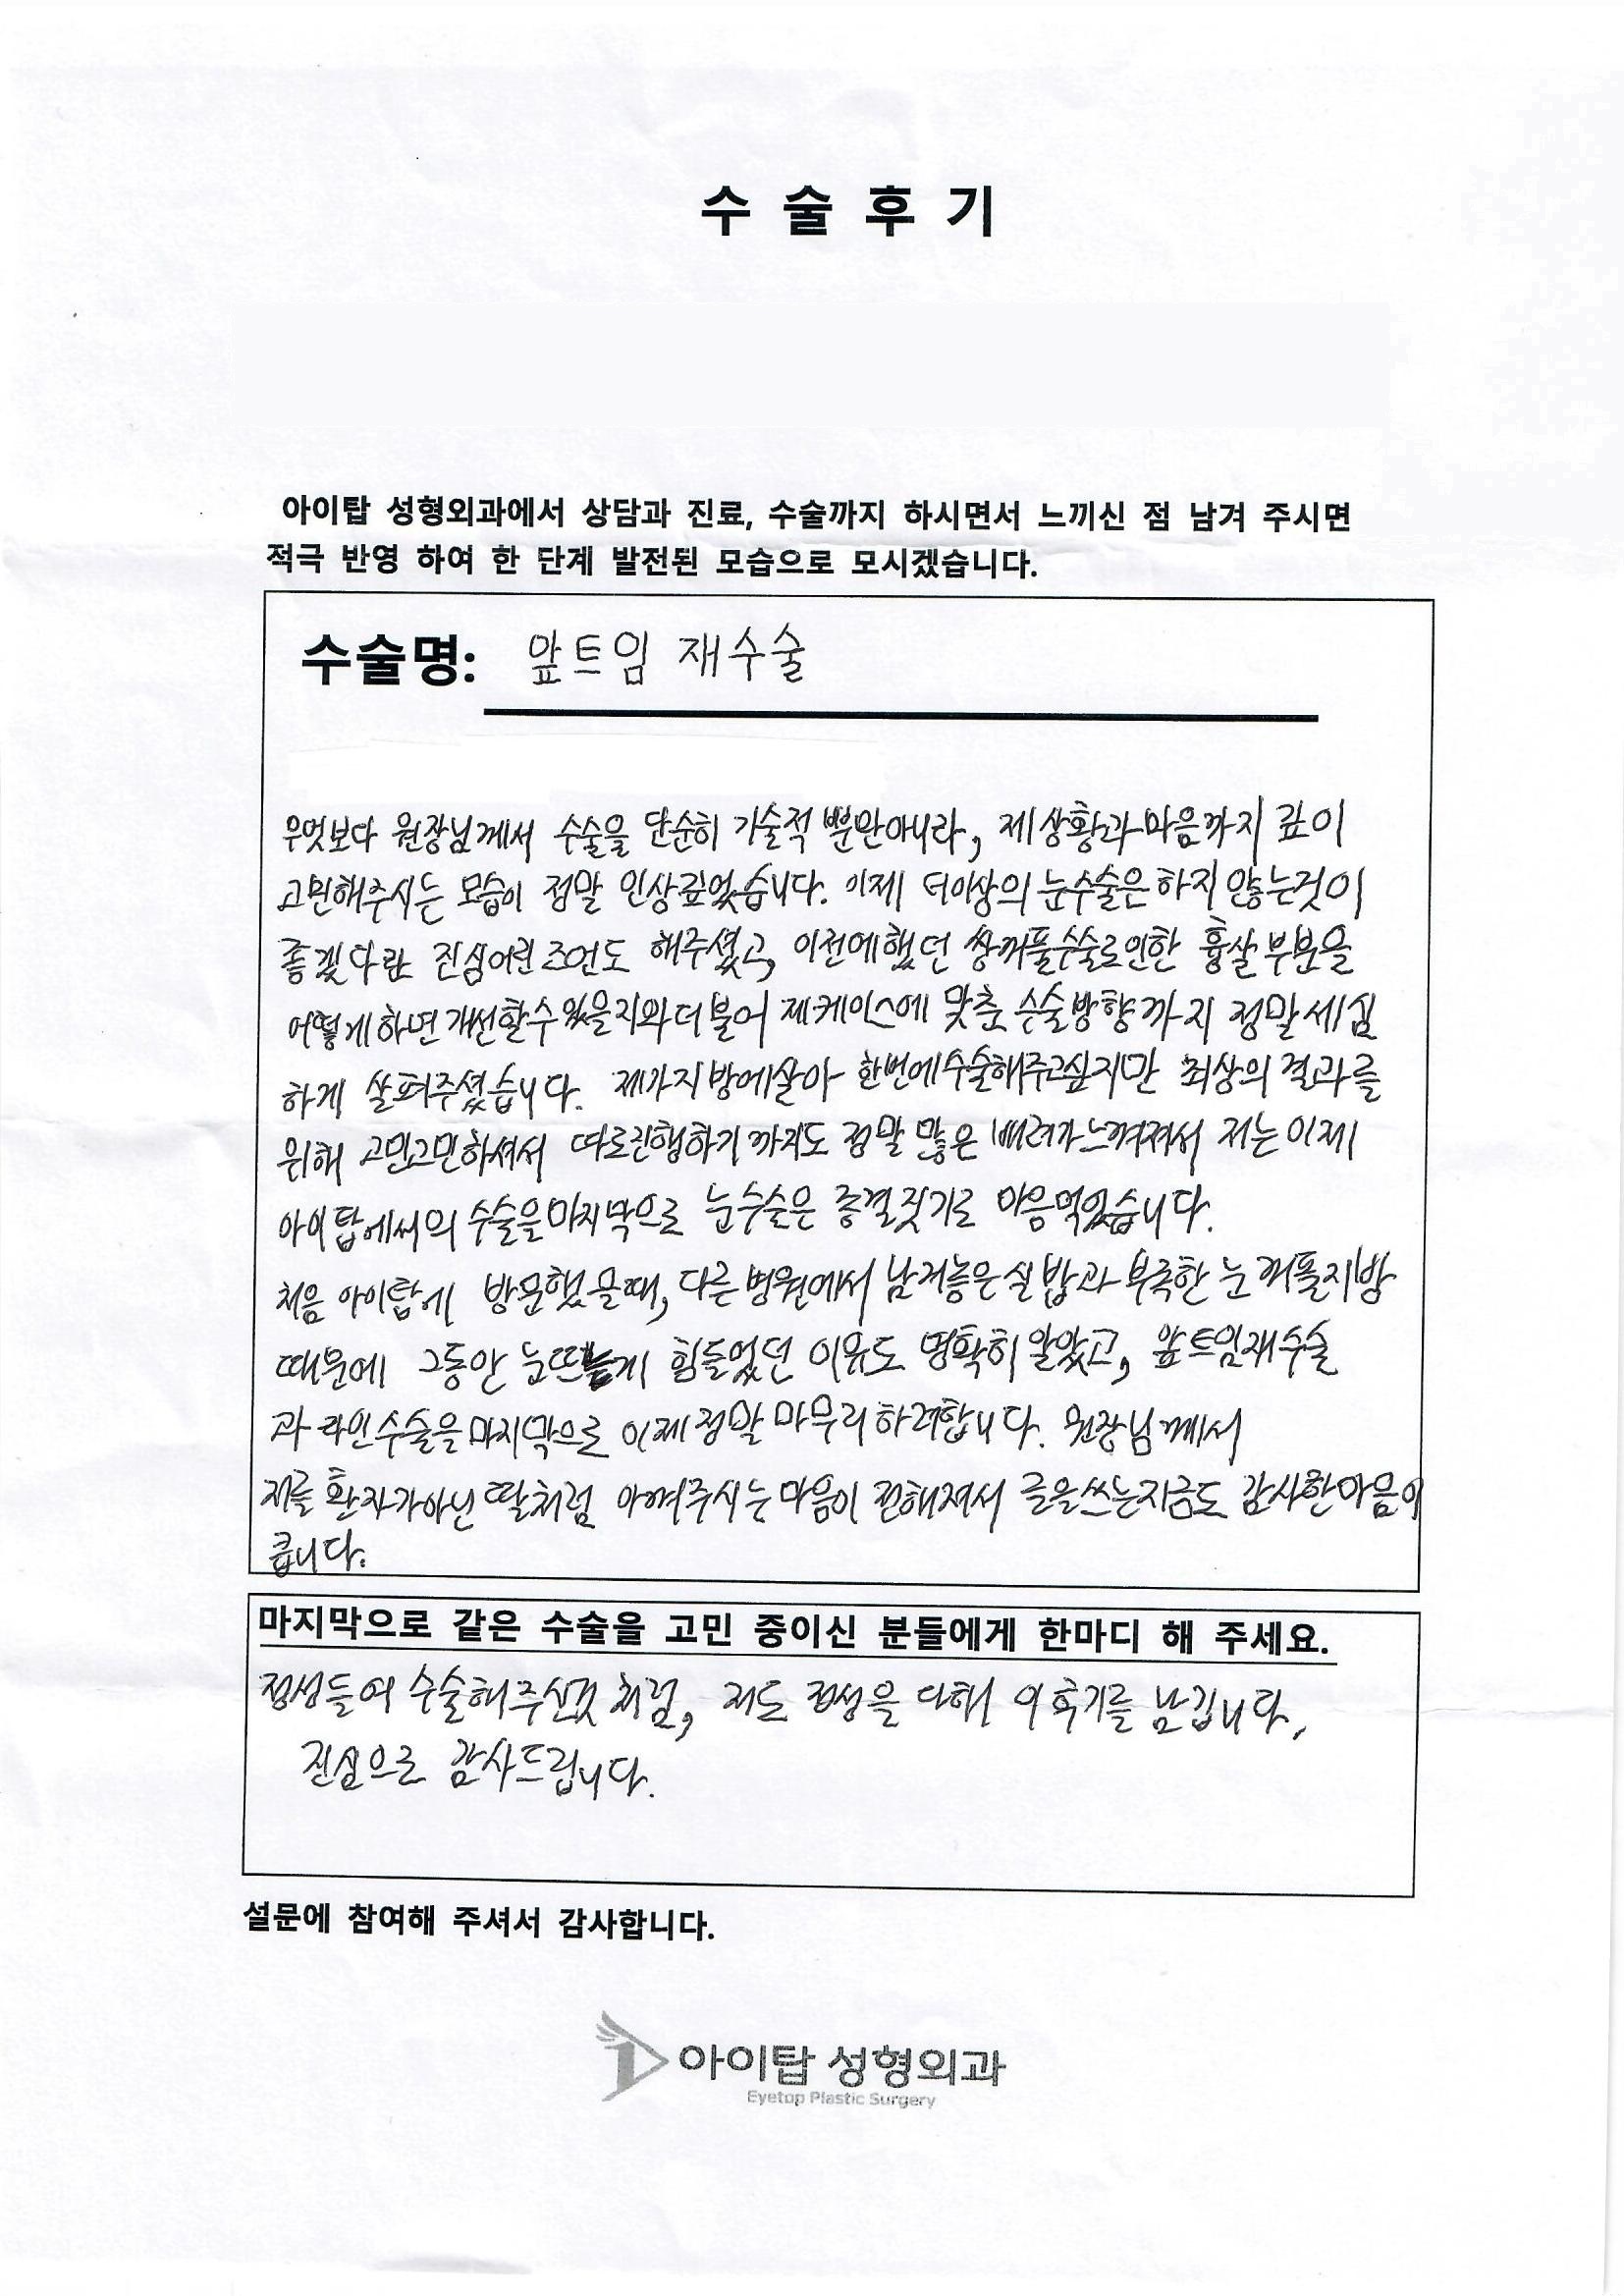 수 술 후 기
아이탑 성형외과에서 상담과 진료, 수술까지 하시면서 느끼신 점 남겨 주시면
적극 반영 하여 한 단계 발전된 모습으로 모시겠습니다.
수술명: 앞트임 재수술
무엇보다 원장님께서 수술을 단순히 기술적 뿐만아니라, 제상황과 마음까지 깊이
고민해주시는 모습이 정말 인상깊었습니다. 이제 더이상의 눈수술은 하지 않는것이
좋겠다란 진심어린 조언도 해주셨고, 이전에했던 쌍꺼풀수술로인한 흉살 부분을
어떻게하면 개선할수 있을지와 더불어 제케이스에 맞춘 수술방향까지 정말 세심
하게 살펴주셨습니다. 제가지방에살아 한번에수술해주고싶지만 최상의 결과를
위해 고민고민하셔서 따로진행하기 까지도 정말 많은 배려가느껴져서 저는 이제
아이탑에서의 수술을마지막으로 눈수술은 종결짓기로 마음먹었습니다.
처음 아이탑에 방문했을때, 다른 병원에서 남겨놓은 실밥과 부족한 눈꺼풀지방
때문에 그동안 눈뜨는게 힘들었던 이유도 명확히 알았고, 앞트임재수술
과 라인수술을마지막으로 이제정말 마무리하려합니다. 원장님께서
저를 환자가아닌 딸처럼 아껴주시는 마음이 전해져서 글을쓰는지금도 감사한마음이
큽니다.
마지막으로 같은 수술을 고민 중이신 분들에게 한마디 해 주세요.
정성들여 수술해주신것 처럼, 저도 정성을 다해 이 후기를 남깁니다.
진심으로 감사드립니다.
설문에 참여해 주셔서 감사합니다.
아이탑 성형외과
Eyetop Plastic Surgery